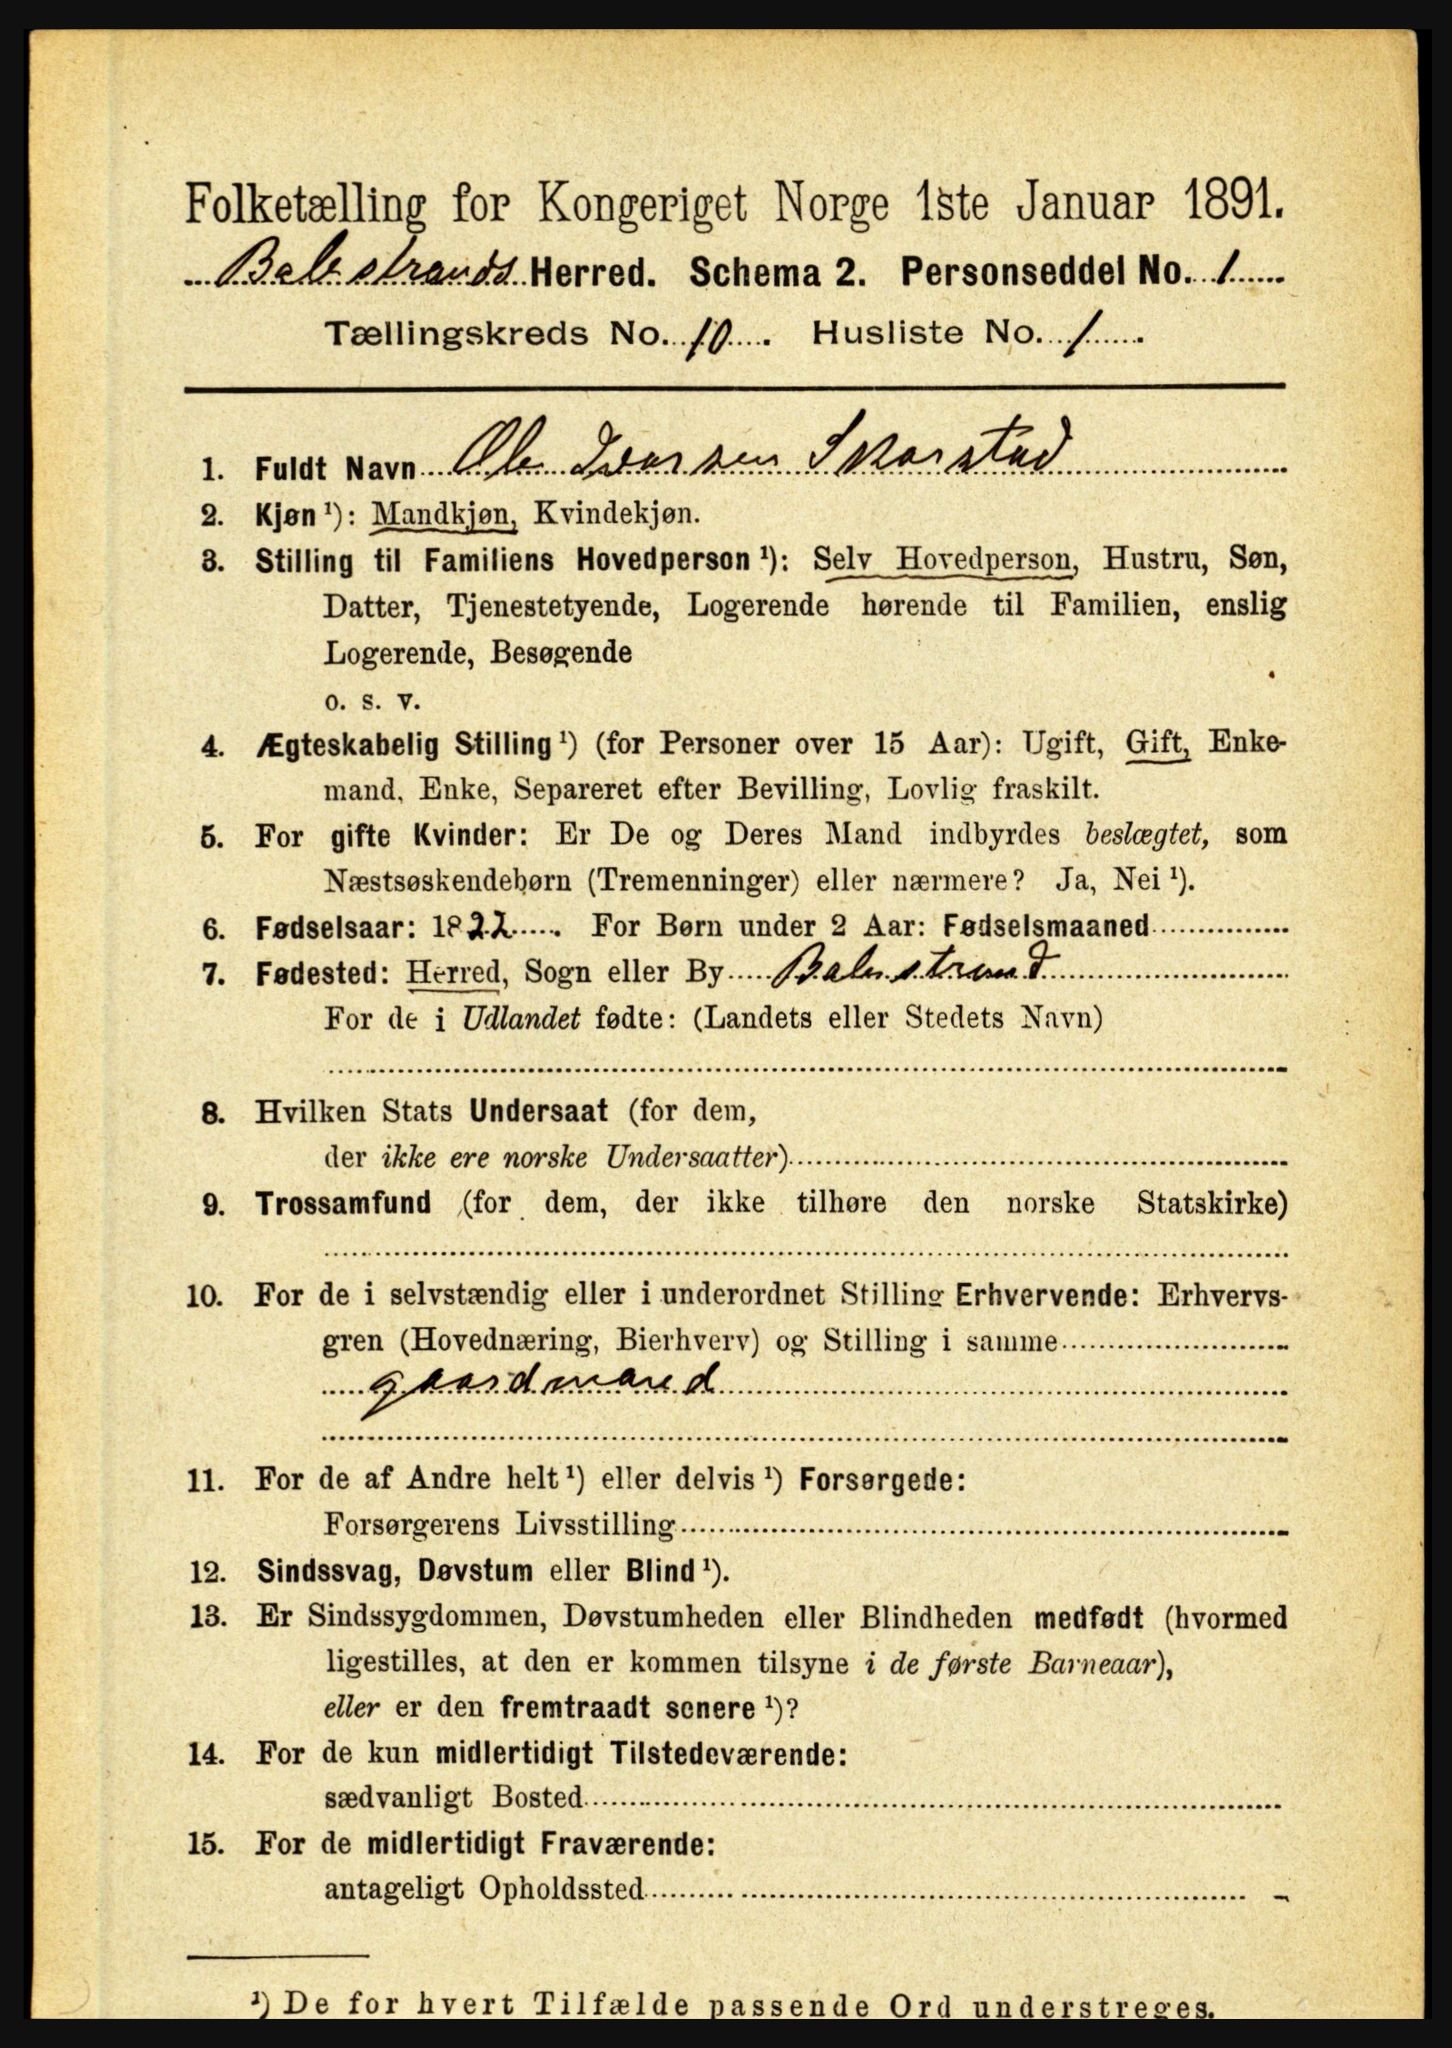 Folketælling for Kongeriget Norge 1ste Januar 1891.
Balestrands Herred. Schema 2. Personseddel No. 1
Tællingskreds No. 10. Husliste No. 1.
1. Fuldt Navn Ole Ivarsen Skarstad
2. Kjøn ¹): Mandkjøn, Kvindekjøn.
3. Stilling til Familiens Hovedperson ¹): Selv Hovedperson, Hustru, Søn,
Datter, Tjenestetyende, Logerende hørende til Familien, enslig
Logerende, Besøgende
o. s. v.
4. Ægteskabelig Stilling ¹) (for Personer over 15 Aar): Ugift, Gift, Enke-
mand, Enke, Separeret efter Bevilling, Lovlig fraskilt.
5. For gifte Kvinder: Er De og Deres Mand indbyrdes beslægtet, som
Næstsøskendebørn (Tremenninger) eller nærmere? Ja, Nei ¹).
6. Fødselsaar: 1822. For Børn under 2 Aar: Fødselsmaaned
7. Fødested: Herred, Sogn eller By Balestrand
For de i Udlandet fødte: (Landets eller Stedets Navn)
8. Hvilken Stats Undersaat (for dem,
der ikke ere norske Undersaatter)
9. Trossamfund (for dem, der ikke tilhøre den norske Statskirke)
10. For de i selvstændig eller i underordnet Stilling Erhvervende: Erhvervs-
gren (Hovednæring, Bierhverv) og Stilling i samme
gaardmand
11. For de af Andre helt ¹) eller delvis ¹) Forsørgede:
Forsørgerens Livsstilling
12. Sindssvag, Døvstum eller Blind ¹).
13. Er Sindssygdommen, Døvstumheden eller Blindheden medfødt (hvormed
ligestilles, at den er kommen tilsyne i de første Barneaar),
eller er den fremtraadt senere ¹)?
14. For de kun midlertidigt Tilstedeværende:
sædvanligt Bosted
15. For de midlertidigt Fraværende:
antageligt Opholdssted
¹) De for hvert Tilfælde passende Ord understreges.